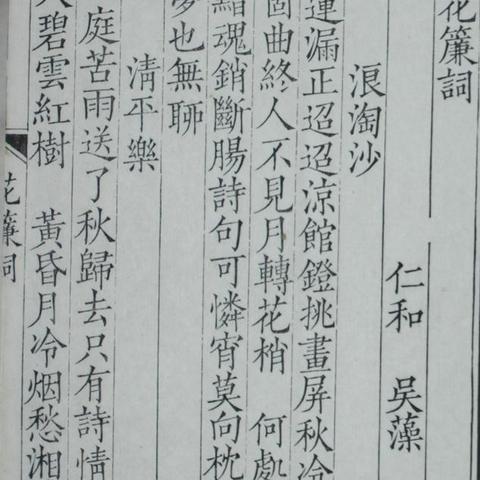 花簾詞
仁和 吳藻
浪淘沙
蓮漏正迢迢涼館鐙挑畫屏秋冷
曲終人不見月轉花梢 何處
黯魂銷斷腸詩句可憐宵莫向枕
夢也無聊
清平樂
庭苦雨送了秋歸去只有詩情
碧雲紅樹 黃昏月冷烟愁湘
花簾詞